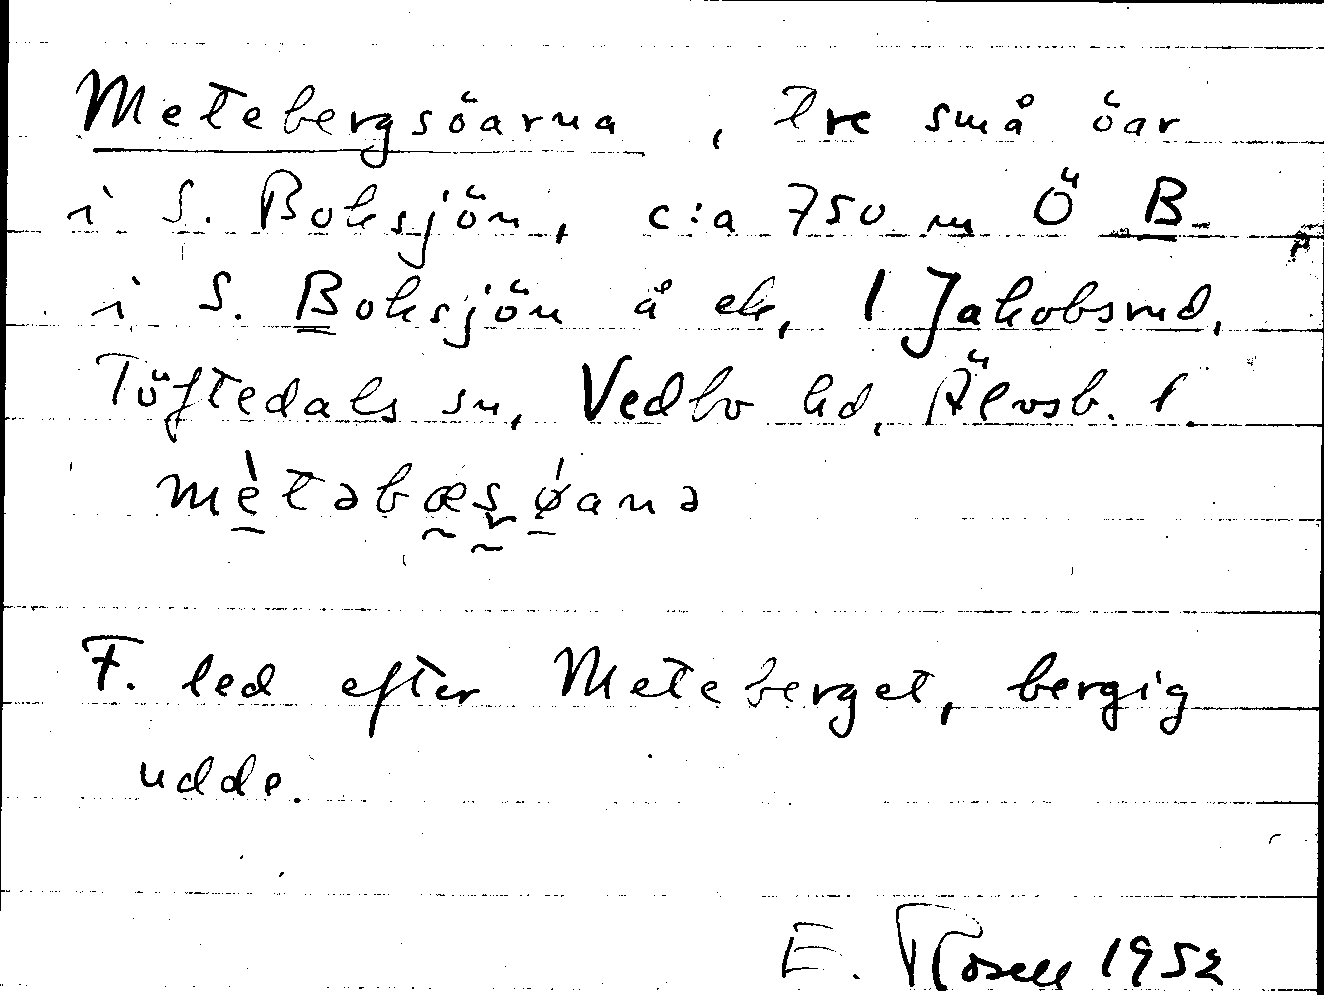 Metebergsöarna, tre små öar
i S. Boksjön, c:a 750 m Ö B
i S. Boksjön å ek, 1 Jakobsrud,
Töftedals sn, Vedbo hd, Älvsb. l.
mètəbæʂøana
F. led efter Meteberget, bergig
udde.
E. Rosell 1952